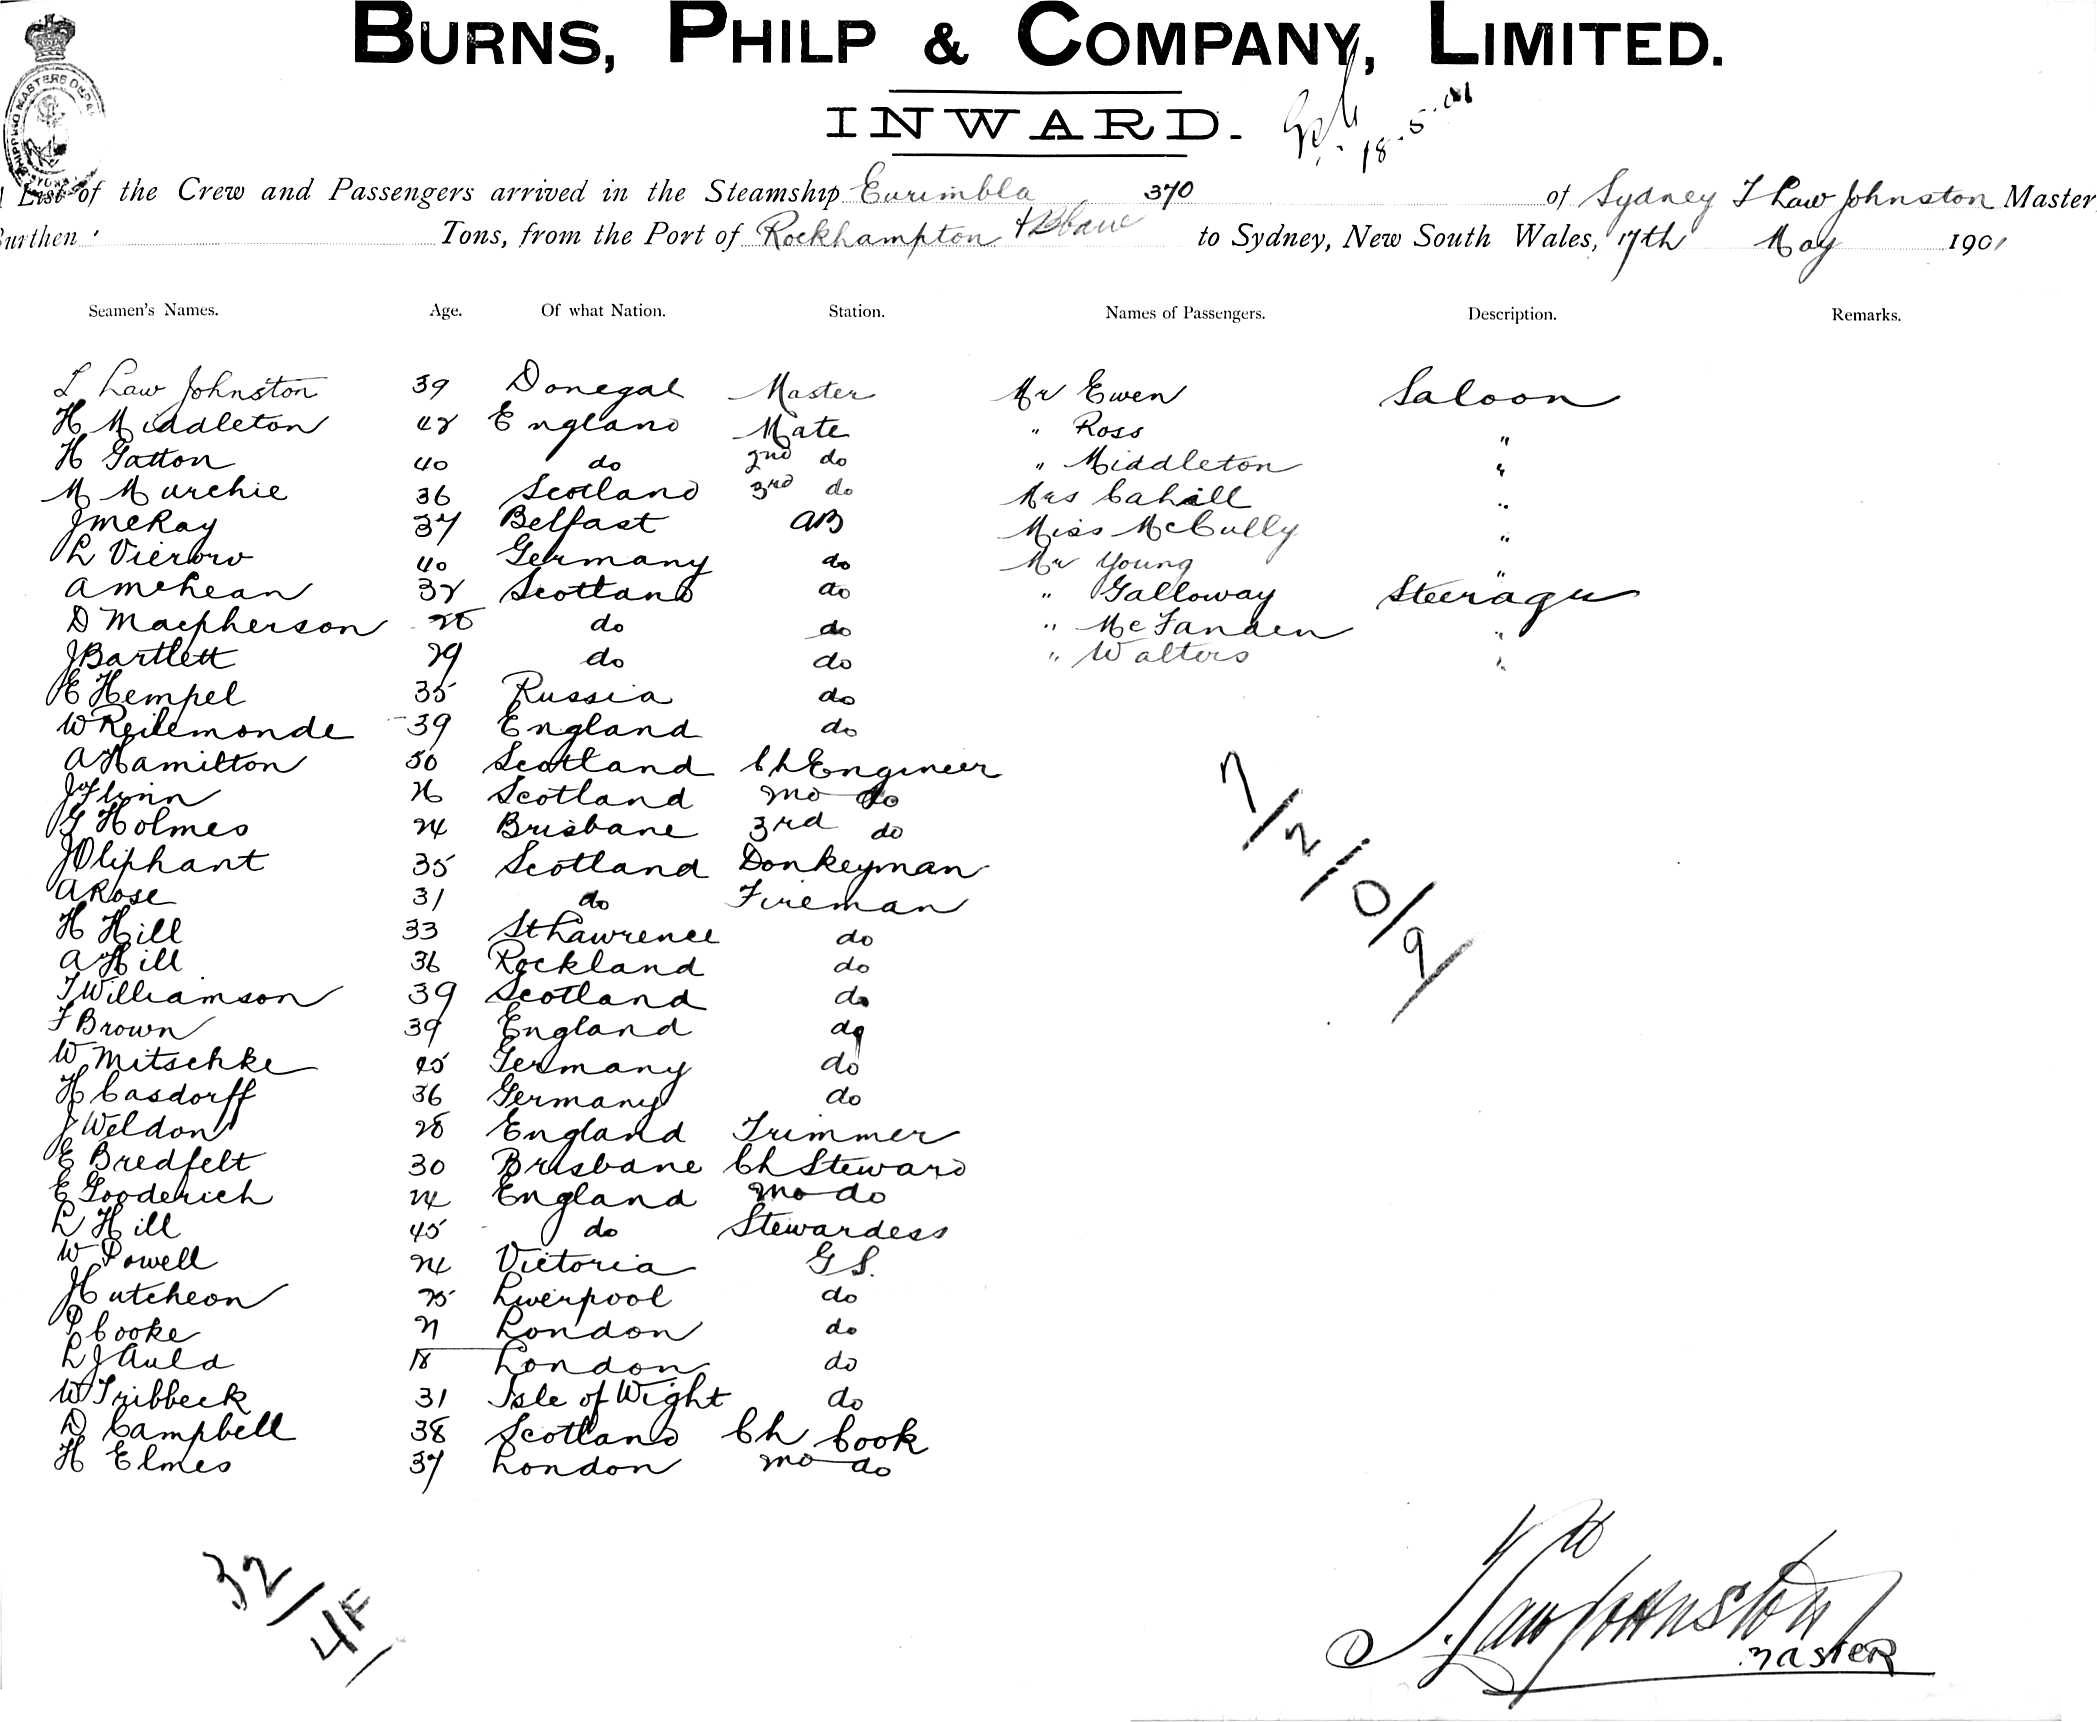 BURNS, PHILP & COMPANY, LIMITED.
INWARD.
18-5-01
List of the Crew and Passengers arrived in the Steamship Eurimbla 370 of Sydney T Law Johnston Master
Burthen Tons, from the Port of Rockhampton + Bbane to Sydney, New South Wales, 17th May 1901
Seamen's Names. Age. Of what Nation. Station. Names of Passengers. Description. Remarks.
T Law Johnston 39 Donegal Master Mr Ewen Saloon
H Middleton 42 England Mate " Ross "
H Gatton 40 do 2nd do " Middleton "
M Murchie 36 Scotland 3rd do Mrs Cahill "
J McKay 37 Belfast AB Miss McCully "
L Vierow 40 Germany do Mr Young "
A McLean 32 Scotland do " Galloway Steerage
D Macpherson 26 do do " McFanden "
J Bartlett 29 do do " Walters "
E Hempel 35 Russia do
W Reilemonde 39 England do
A Hamilton 50 Scotland Ch Engineer
J Flynn 26 Scotland 2nd do
G Holmes 24 Brisbane 3rd do
J Oliphant 35 Scotland Donkeyman
A Rose 31 do Fireman
H Hill 33 St Lawrence do
A Hill 36 Rockland do
T Williamson 39 Scotland do
F Brown 39 England do
W Mitschke 25 Germany do
H Casdorff 36 Germany do
J Weldon 28 England Trimmer
E Bredfelt 30 Brisbane Ch Steward
E Gooderich 24 England 2nd do
L Hill 45 do Stewardess
W Powell 24 Victoria G S.
J Hutcheon 25 Liverpool do
P Cooke 21 London do
L J Auld 18 London do
W Tribbeck 31 Isle of Wight do
D Campbell 38 Scotland Ch Cook
H Elmes 37 London 2nd do
7/2/0/9
32/4F
T. Law Johnston
Master